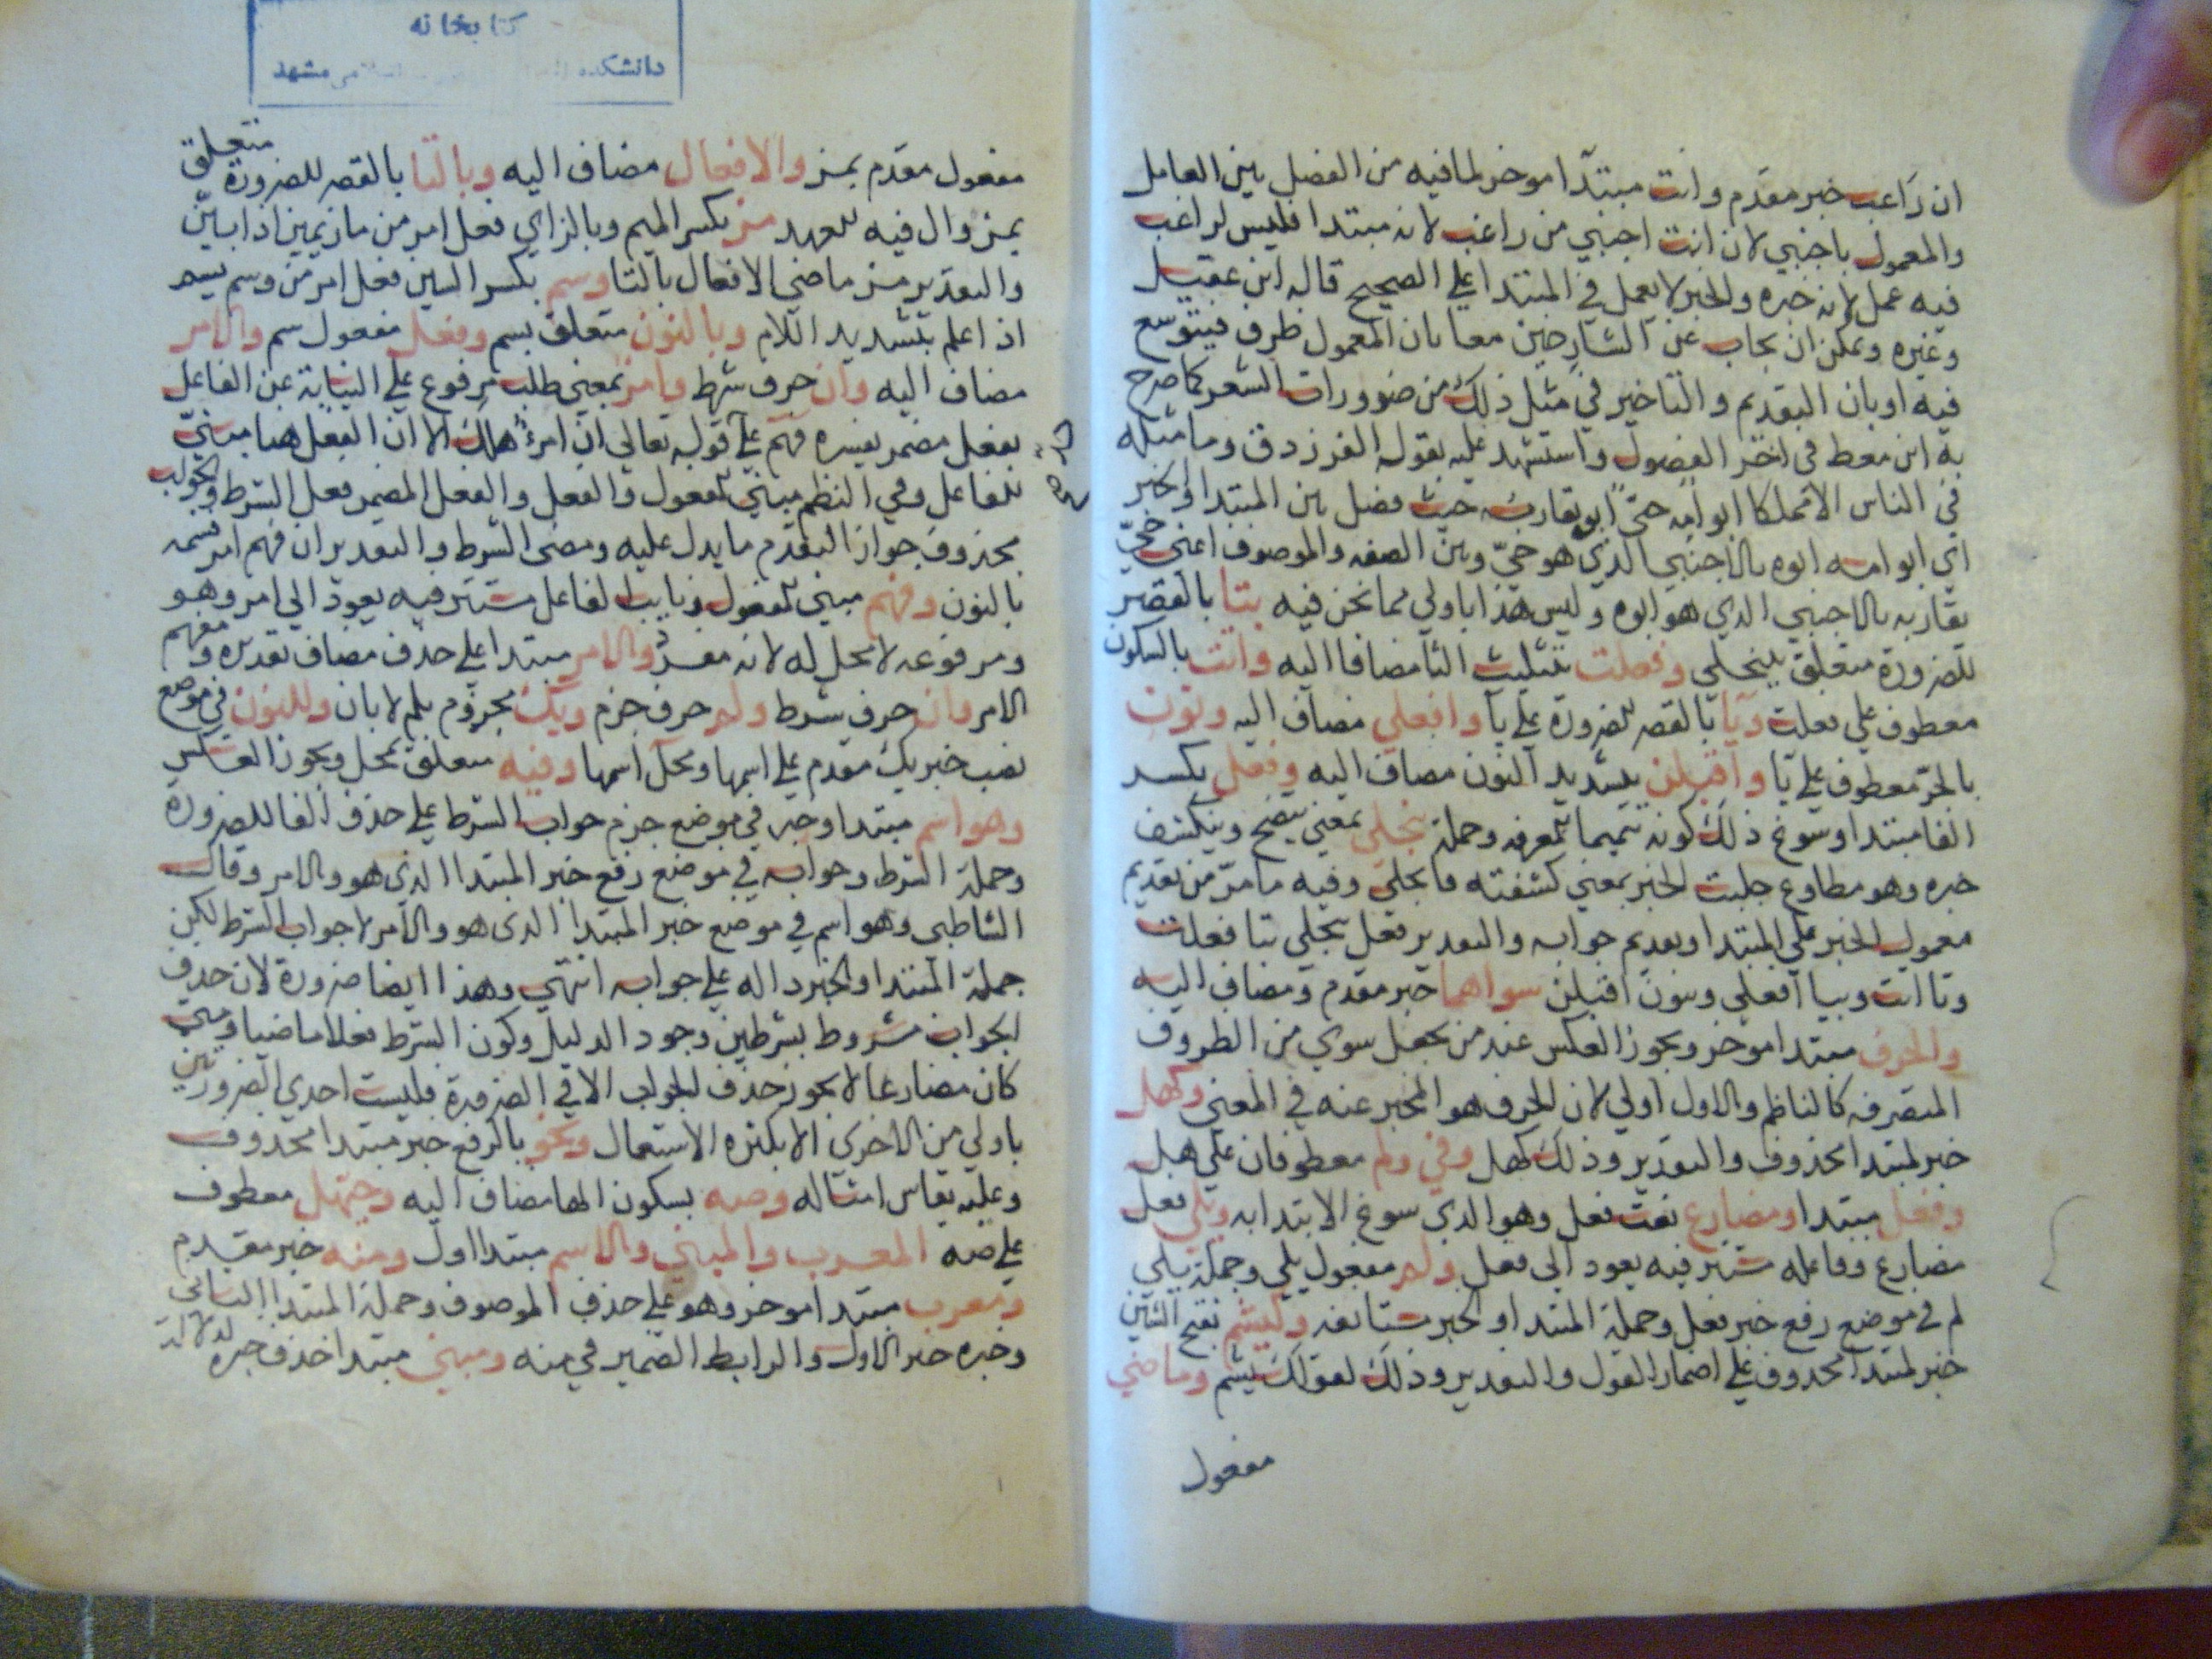 ان راغب خبر مقدم وانت مبتدآ موخر لما فيه من الفصل بين العامل
والمعمول باجنبي لان انت اجنبي من راغب لانه مبتدا فليس لراغب
فيه عمل لانه خبره والخبر لا يعمل في المبتدا علي الصحيح قاله ابن عقيل
وغيره ويمكن ان يجاب عن الشارحين معا بان المعمول ظرف فيتوسع
فيه او بان التقديم والتاخير في مثل ذلك من ضرورات الشعر كما صرح
به ابن معط في اخر الفصول واستشهد عليه بقول الفرزدق وما مثله
في الناس الا مملكا ابو امه حي ابوه يقاربه حيث فصل بين المبتدا والخبر
اي ابو امه ابوه بالاجنبي الذي هو حي وبين الصفه والموصوف اعني حي
يقاربه بالاجنبي الذي هو ابوه وليس هذا باولي مما نحن فيه بتا بالقصر
للضرورة متعلق بينجلي وفعلت بتثليث التا مضافا اليه وانت بالسكون
معطوف علي فعلت ويا بالقصر للضرورة علي يا وافعلي مضاف اليه ونون
بالجر معطوف علي يا واقبلن بتشديد النون مضاف اليه وفعل بكسر
الفا مبتدا وسوغ ذلك كونه تتميما للمعرفه وجملة ينجلي بمعني يتضح وينكشف
خبره وهو مطاوع جليت الخبر بمعني كشفته فانجلي وفيه ما مر من تقديم
معمول الخبر علي المبتدا وتقديم جوابه والتقدير فعل ينجلي بتا فعلت
وتا انت وبيا افعلي وبنون اقبلن سواهما خبر مقدم ومضاف اليه
والحرف مبتدا موخر ويجوز العكس عند من يجعل سوي من الظروف
المتصرفه كالناظم والاول اولي لان الحرف هو المخبر عنه في المعني وكهل
خبر لمبتدا محذوف والتقدير وذلك كهل وفي ولم معطوفان علي هل
وفعل مبتدا ومضارع نعت فعل وهو الذي سوغ الابتدا به ويلي فعل
مضارع وفاعله مستتر فيه يعود الي فعل ولم مفعول يلي وجملة يلي
لم في موضع رفع خبر فعل وجملة المبتدا والخبر مستانفه وكيشم بفتح الشين
خبر لمبتدا محذوف علي اضمار القول والتقدير وذلك كقولك يشم وماضي
مفعول
كتابخانه
دانشكده اسلامى مشهد
مفعول مقدم بمز والافعال مضاف اليه وبالتا بالقصر للضرورة متعلق
بمز وال فيه للعهد مز بكسر الميم وبالزاي فعل امر من ماز يميز اذا بين
والتقدير مز ماضي الافعال بالتا وسم بكسر السين فعل امر من وسم يسم
اذ اعلم بتشديد اللام وبالنون متعلق بسم وفعل مفعول سم والامر
مضاف اليه وان حرف شرط وامر بمعني طلب مرفوع علي النيابة عن الفاعل
بفعل مضمر يفسره فهم علي قوله تعالي ان امرء هلك الا ان الفعل هنا مبني
للفاعل وفي النظم مبني للمفعول والفعل والفعل المضمر فعل الشرط والجواب
محذوف جوازا لتقدم ما يدل عليه ومضي الشرط والتقدير ان فهم امر فسمه
بالنون وفهم مبني للمفعول ونايب الفاعل مستتر فيه يعود الي امر وهو
ومرفوعه لا محل له لانه مفسر والامر مبتدا علي حذف مضاف تقديره ومفهم
الامر وان حرف شرط ولم حرف جزم ويك مجزوم بلم لا بان وللنون في موضع
نصب خبر يك مقدم علي اسمها ومحل اسمها وفيه متعلق بمحل ويجوز العكس
وهو اسم مبتدا وخبره في موضع جزم جواب الشرط علي حذف الفا للضرورة
وجملة الشرط وجوابه في موضع رفع خبر المبتدا الذي هو والامر وقال
الشاطبي وهو اسم في موضع خبر المبتدا الذي هو والامر لا جواب الشرط لكن
جملة المبتدا والخبر داله علي جوابه انتهي وهذا ايضا ضرورة لان حذف
الجواب مشروط بشرطين وجود الدليل وكون الشرط فعلا ماضيا ومتي
كان مضارعا لا يجوز حذف الجواب الا في الضرورة فليست احدي الضرورتين
باولي من الاخري الا بكثره الاستعمال ونحو بالرفع خبر مبتدا محذوف
وعليه يقاس امثاله وصه بسكون الها مضاف اليه وحيهل معطوف
علي صه المعرب والمبني والاسم مبتدا اول ومنه خبر مقدم
ومعرب مبتدا موخر وهو علي حذف الموصوف وجملة المبتدا الثاني
وخبره خبر الاول والرابط الضمير في منه ومبني مبتدا حذف خبره لدلالة